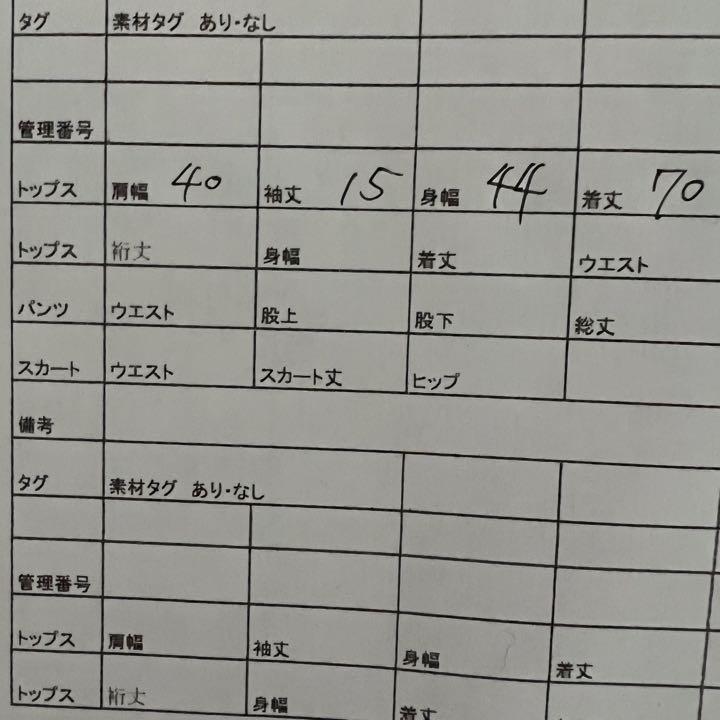 タグ 素材タグ あり・なし
管理番号
トップス 肩幅 40 袖丈 15 身幅 44 着丈 70
トップス 裄丈 身幅 着丈 ウエスト
パンツ ウエスト 股上 股下 総丈
スカート ウエスト スカート丈 ヒップ
備考
タグ 素材タグ あり・なし
管理番号
トップス 肩幅 袖丈 身幅 着丈
トップス 裄丈 身幅 着丈